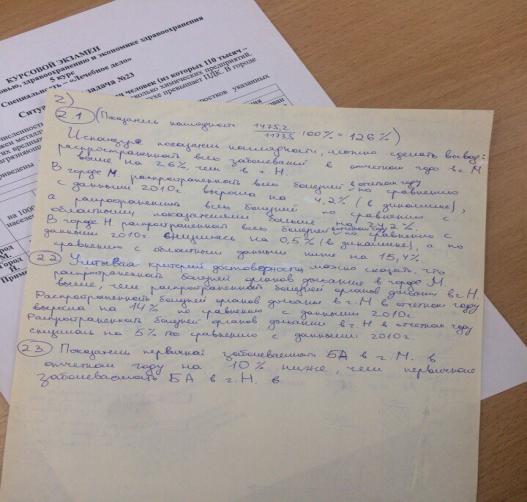 КУРСОВОЙ ЭКЗАМЕН
здоровью, здравоохранению и экономике здравоохранения
5 курс
Специальность – «Лечебное дело»
задача №23
человек (из которых 110 тысяч –
химических предприятий,
превышает ПДК. В городе
указанных
2)
2.1 (Показатель наглядности 1475,2 / 1173,5 100% = 126%)
Используя показатель наглядности, можно сделать вывод:
распространенность всех заболеваний в отчетном году в г. М
выше на 26%, чем в г. Н.
В городе М распространенность всех болезней в отчетном году по сравнению
с данными 2010г. выросла на 4,2% (в динамике),
а распространенность всех болезней по сравнению с
областными показателями больше на
В городе Н распространенность всех болезней по сравнению с
данными 2010г. снизилась на 0,5% (в динамике), а по
сравнению с областными данными ниже на 15,4%.
2.2 Учитывая критерий достоверности можно сказать, что
распространенность болезней органов дыхания в городе М.
выше, чем распространенность болезней органов дыхания в г. Н.
Распространенность болезней органов дыхания в г. М в отчетном году
выросла на 14% по сравнению с данными 2010г.
Распространенность болезней органов дыхания в г. Н в отчетном году
снизилась на 5% по сравнению с данными 2010г.
2.3 Показатель первичной заболеваемости БА в г. М. в
отчетном году на 10% ниже, чем первичная
заболеваемость БА в г. Н. в